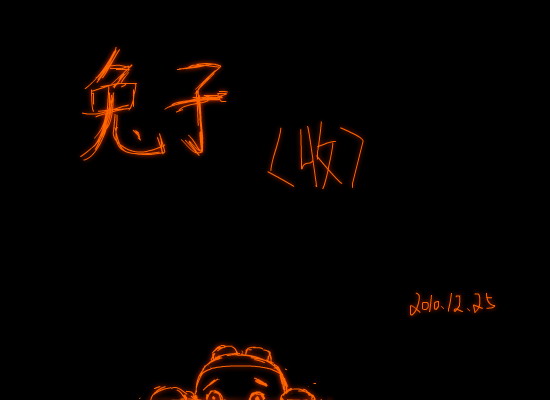 兔子
〈收〉
2010.12.25